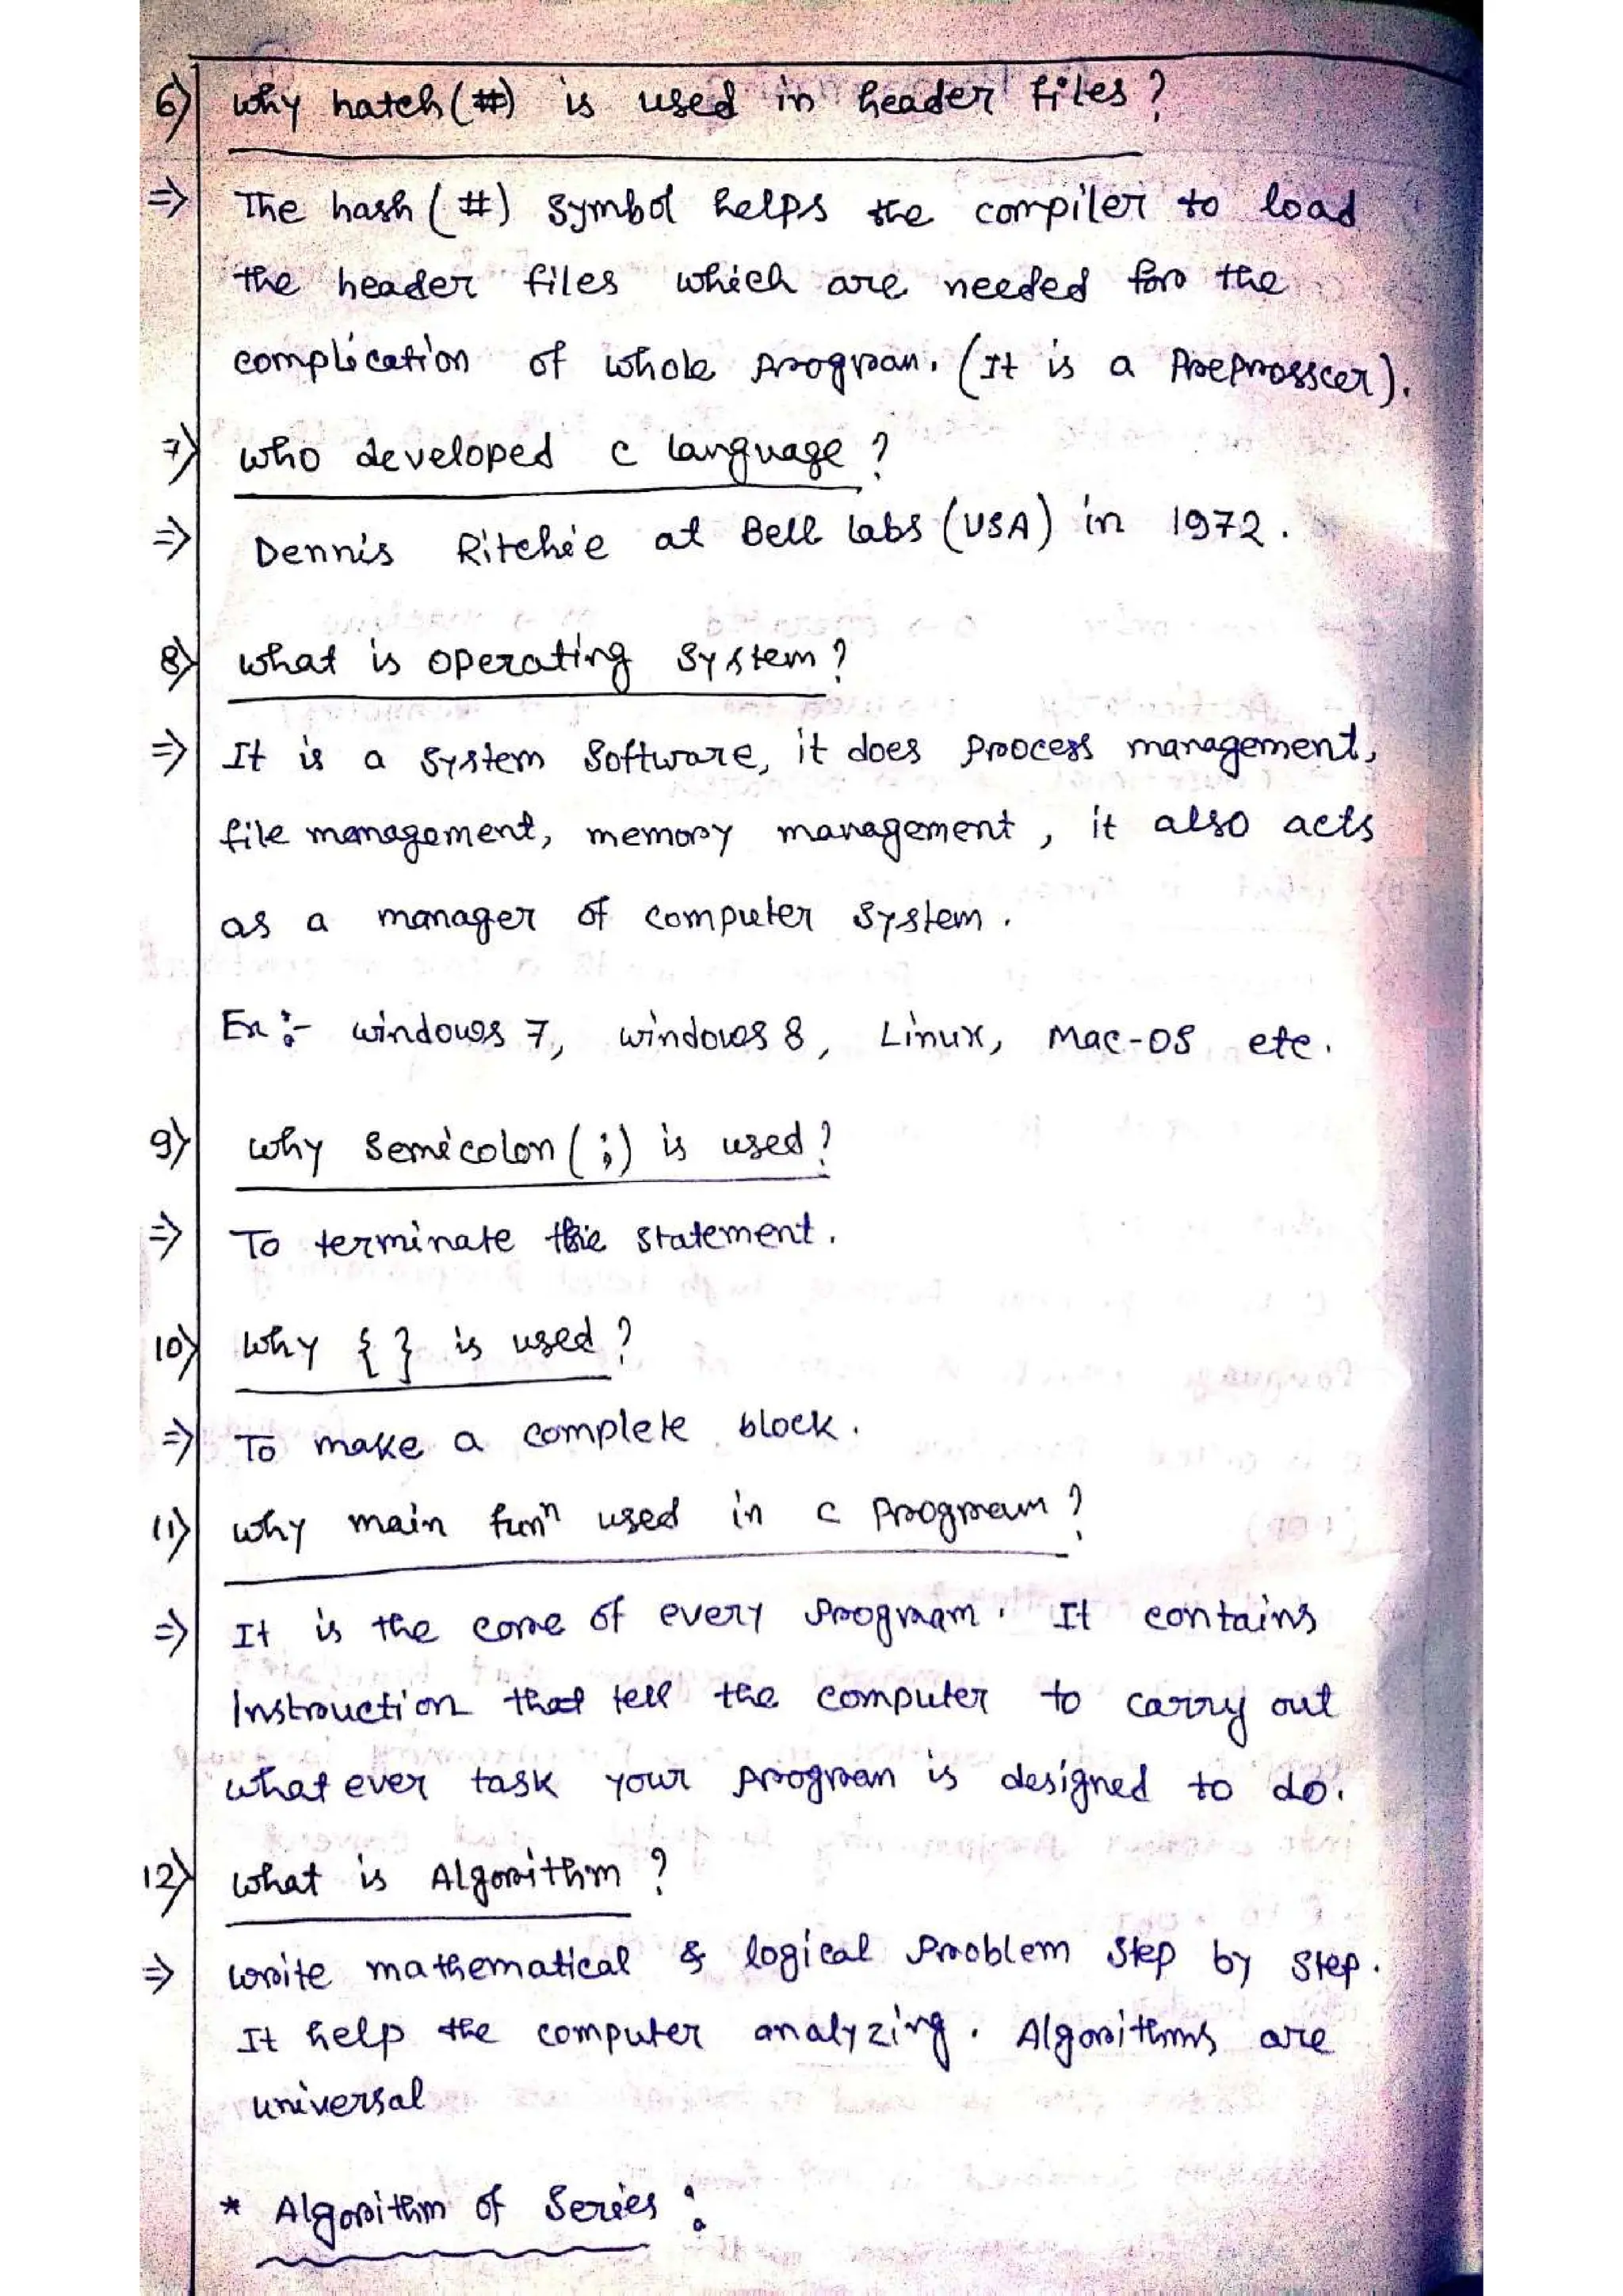 6) Why hatch (#) is used in header files?
=> The hash (#) symbol helps the compiler to load
the header files which are needed for the
complication of whole program. (It is a Preprosscer).
7) Who developed C language?
=> Dennis Ritchie at Bell labs (USA) in 1972.
8) What is operating system?
=> It is a system software, it does process management,
file management, memory management, it also acts
as a manager of computer system.
Ex:- windows 7, windows 8, Linux, Mac-OS etc.
9) Why semicolon (;) is used?
=> To terminate the statement.
10) Why { } is used?
=> To make a complete block.
11) Why main funⁿ used in C program?
=> It is the core of every program. It contains
Instruction that tell the computer to carry out
what ever task your program is designed to do.
12) What is Algorithm?
=> Write mathematical & logical problem step by step.
It help the computer analyzing. Algorithms are
universal
* Algorithm of Series: